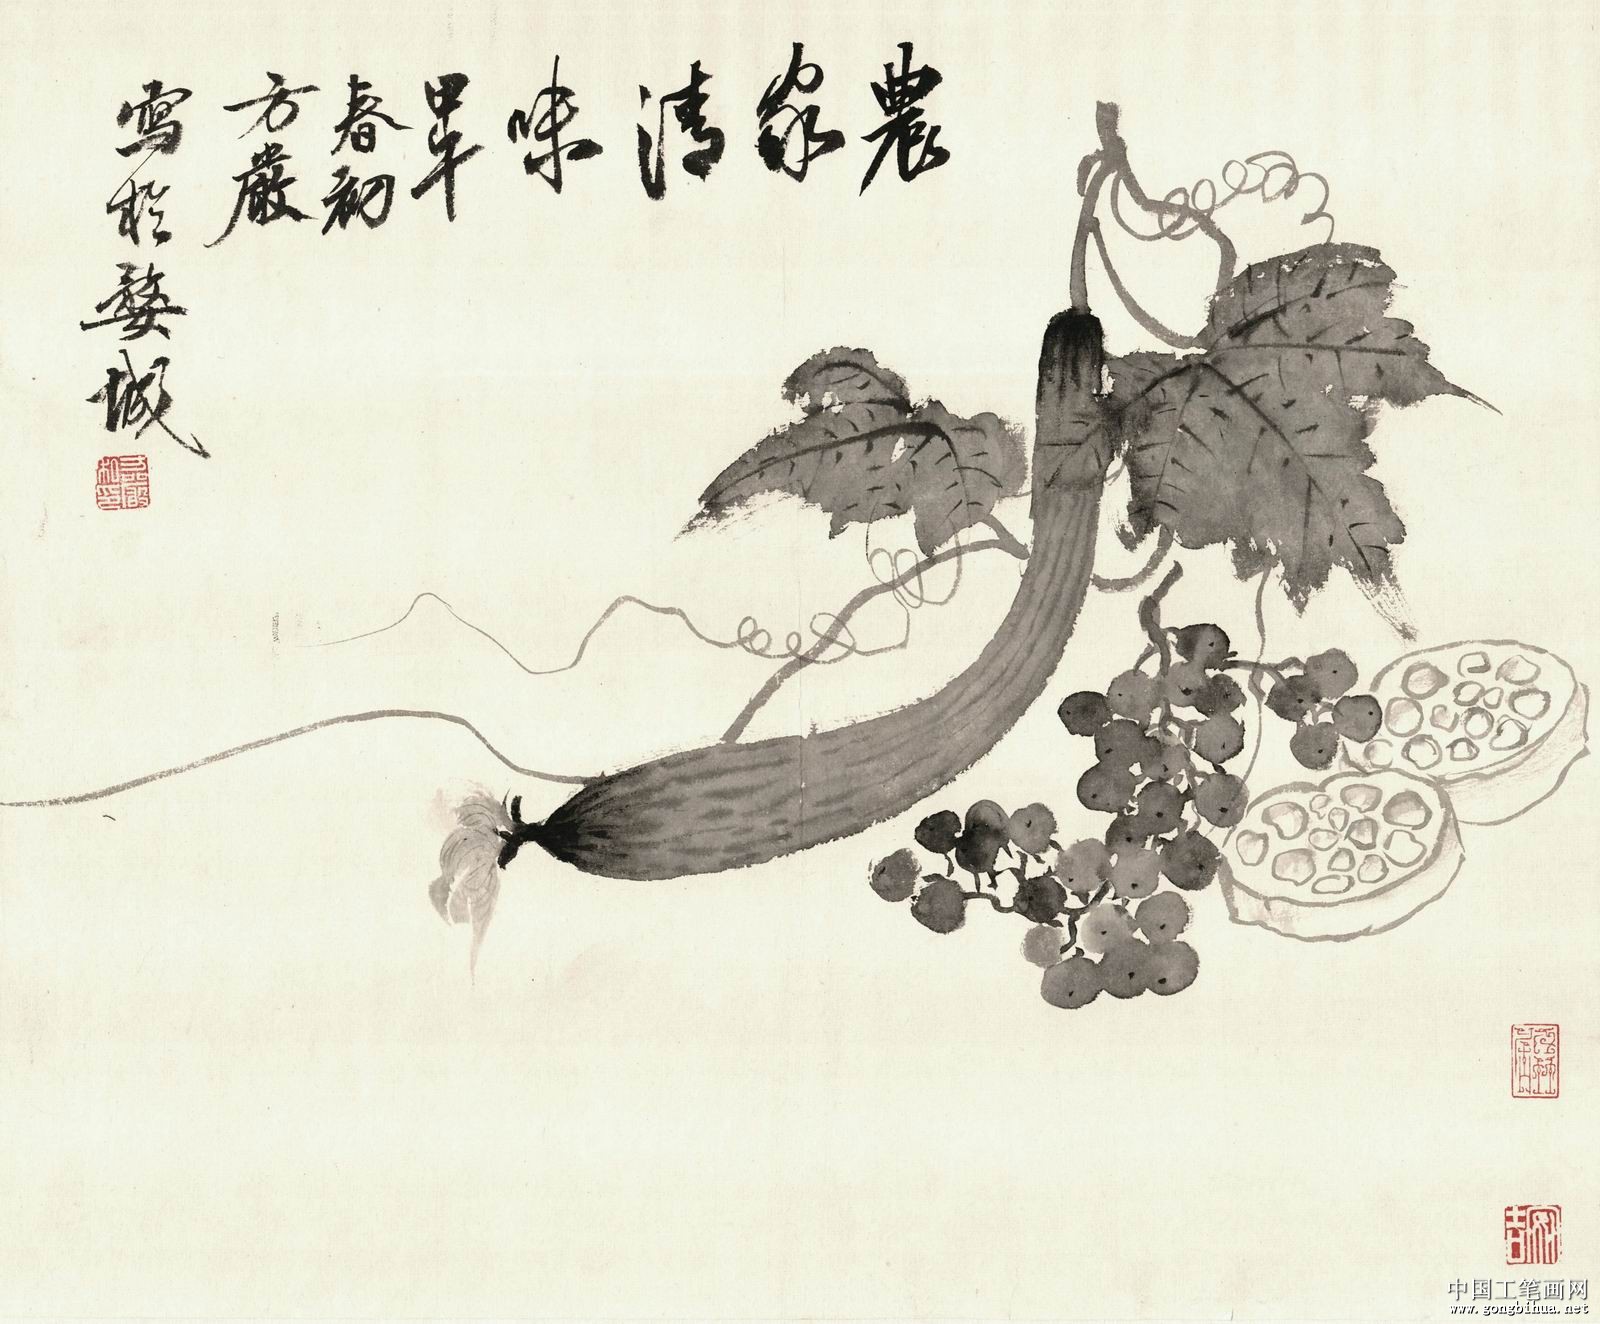 農家清味
甲午
春初
方嚴
寫於婺城
中国工笔画网
www.gongbihua.net